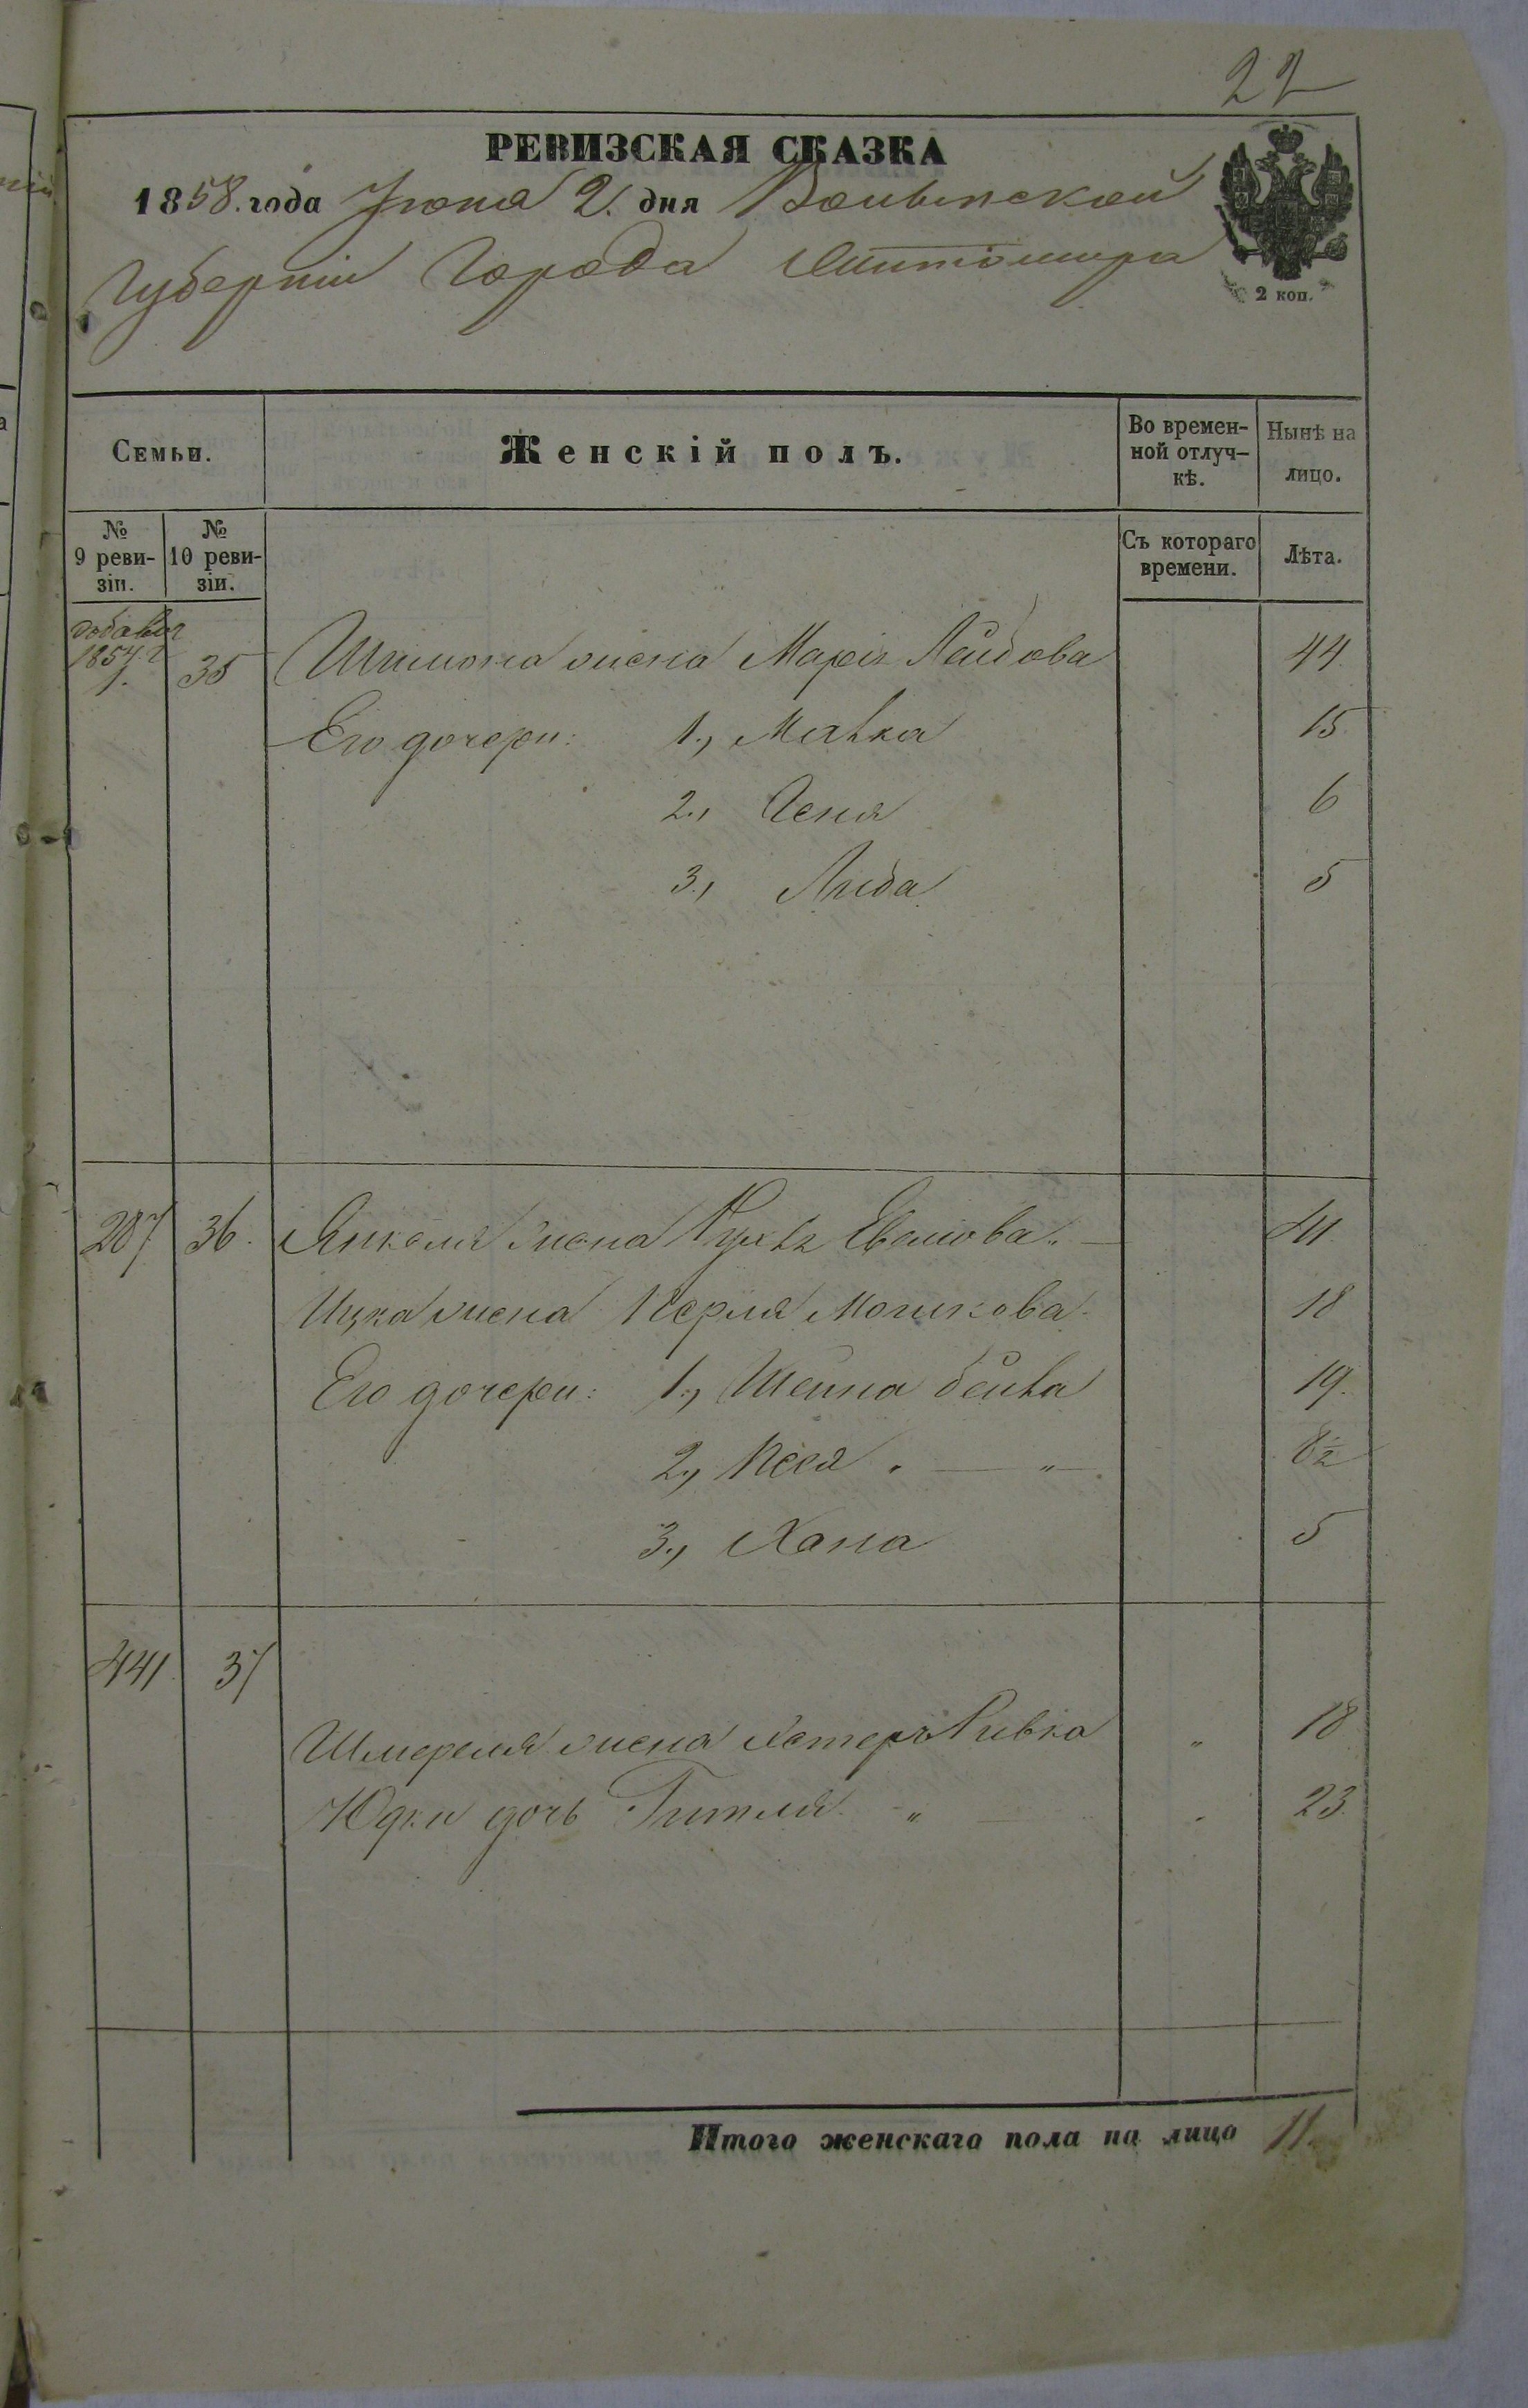 22
РЕВИЗСКАЯ СКАЗКА
1858. года Іюня 2. дня Волынской
Губерніи Города Житоміра
2 коп.
Семьи.
Женскій полъ.
Во времен-
ной отлуч-
кѣ.
Нынѣ на
лицо.
№
9 реви-
зіи.
№
10 реви-
зіи.
Съ котораго
времени.
Лѣта.
1854. г
1.
35
Шимона жена Марія Лейбова
44
Его дочери: 1., Малка
15
2., Геня
6
3., Либа
5
287
36.
Янкеля жена
41
Ицка жена Перля Мошкова
18
Его дочери: 1., Шейна бейла
19.
2., Песя
8½
3., Хана
5
441
37
Шмереля жена Хетеръ Ривка
"
18
Юдки дочь Гитля "
23.
Итого женскаго пола на лицо 11.